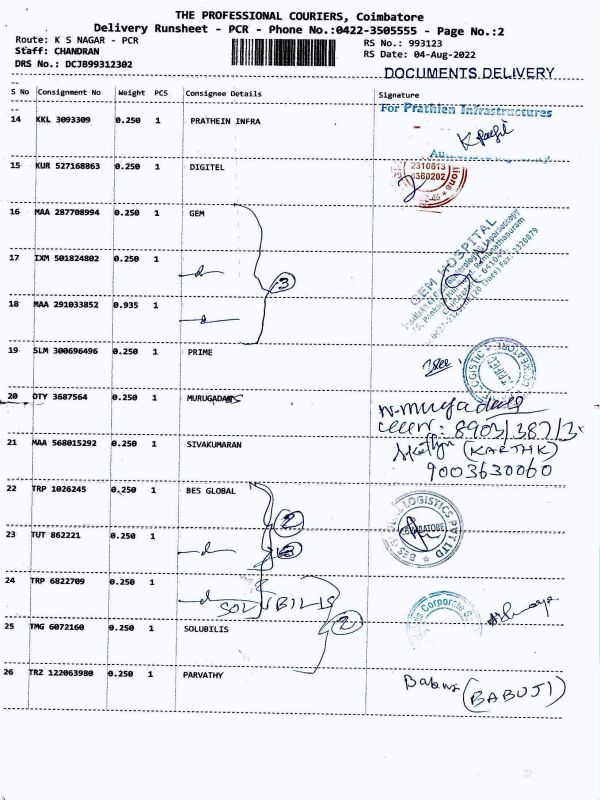 THE PROFESSIONAL COURIERS, Coimbatore
Delivery Runsheet - PCR - Phone No.:0422-3505555 - Page No.:2
Route: K S NAGAR - PCR
RS No.: 993123
Staff: CHANDRAN
RS Date: 04-Aug-2022
DRS No.: DCJB99312302
DOCUMENTS DELIVERY
S No Consignment No Weight PCS Consignee Details Signature
For Prathien Infrastructures
14 KKL 3093309 0.250 1 PRATHEIN INFRA
15 KUR 527168863 0.250 1 DIGITEL
2310613
4360202
16 MAA 287708994 0.250 1 GEM
GEM HOSPITAL
17 IXM 501824802 0.250 1
3
18 MAA 291033852 0.935 1
19 SLM 300696496 0.250 1 PRIME
20 OTY 3687564 0.250 1 MURUGADASS
21 MAA 568015292 0.250 1 SIVAKUMARAN
(KARTHK)
9003630060
22 TRP 1026245 0.250 1 BES GLOBAL
BES GLOBAL LOGISTICS PVT LTD
COIMBATORE
2
23 TUT 862221 0.250 1
3
24 TRP 6822709 0.250 1
SOLUBILIS
25 TMG 6072160 0.250 1 SOLUBILIS
2
26 TRZ 122063980 0.250 1 PARVATHY
Babu
(BABUJI)